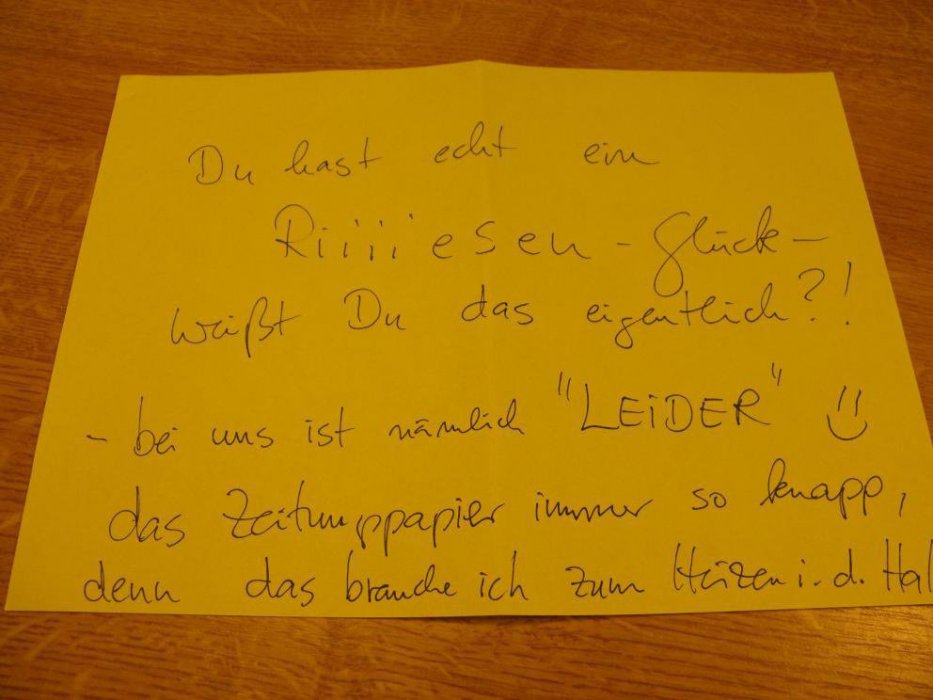 Du hast echt ein
Riiiiesen-Glück-
weißt Du das eigentlich?!
- bei uns ist nämlich "LEiDER"
das Zeitungspapier immer so knapp,
denn das brauche ich zum Heizen i. d. Hal